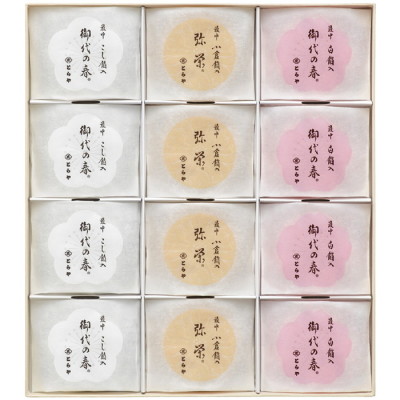 最中 こし餡入
御代の春
とらや
最中 小倉餡入
弥栄
とらや
最中 白餡入
御代の春
とらや
最中 こし餡入
御代の春
とらや
最中 小倉餡入
弥栄
とらや
最中 白餡入
御代の春
とらや
最中 こし餡入
御代の春
とらや
最中 小倉餡入
弥栄
とらや
最中 白餡入
御代の春
とらや
最中 こし餡入
御代の春
とらや
最中 小倉餡入
弥栄
とらや
最中 白餡入
御代の春
とらや